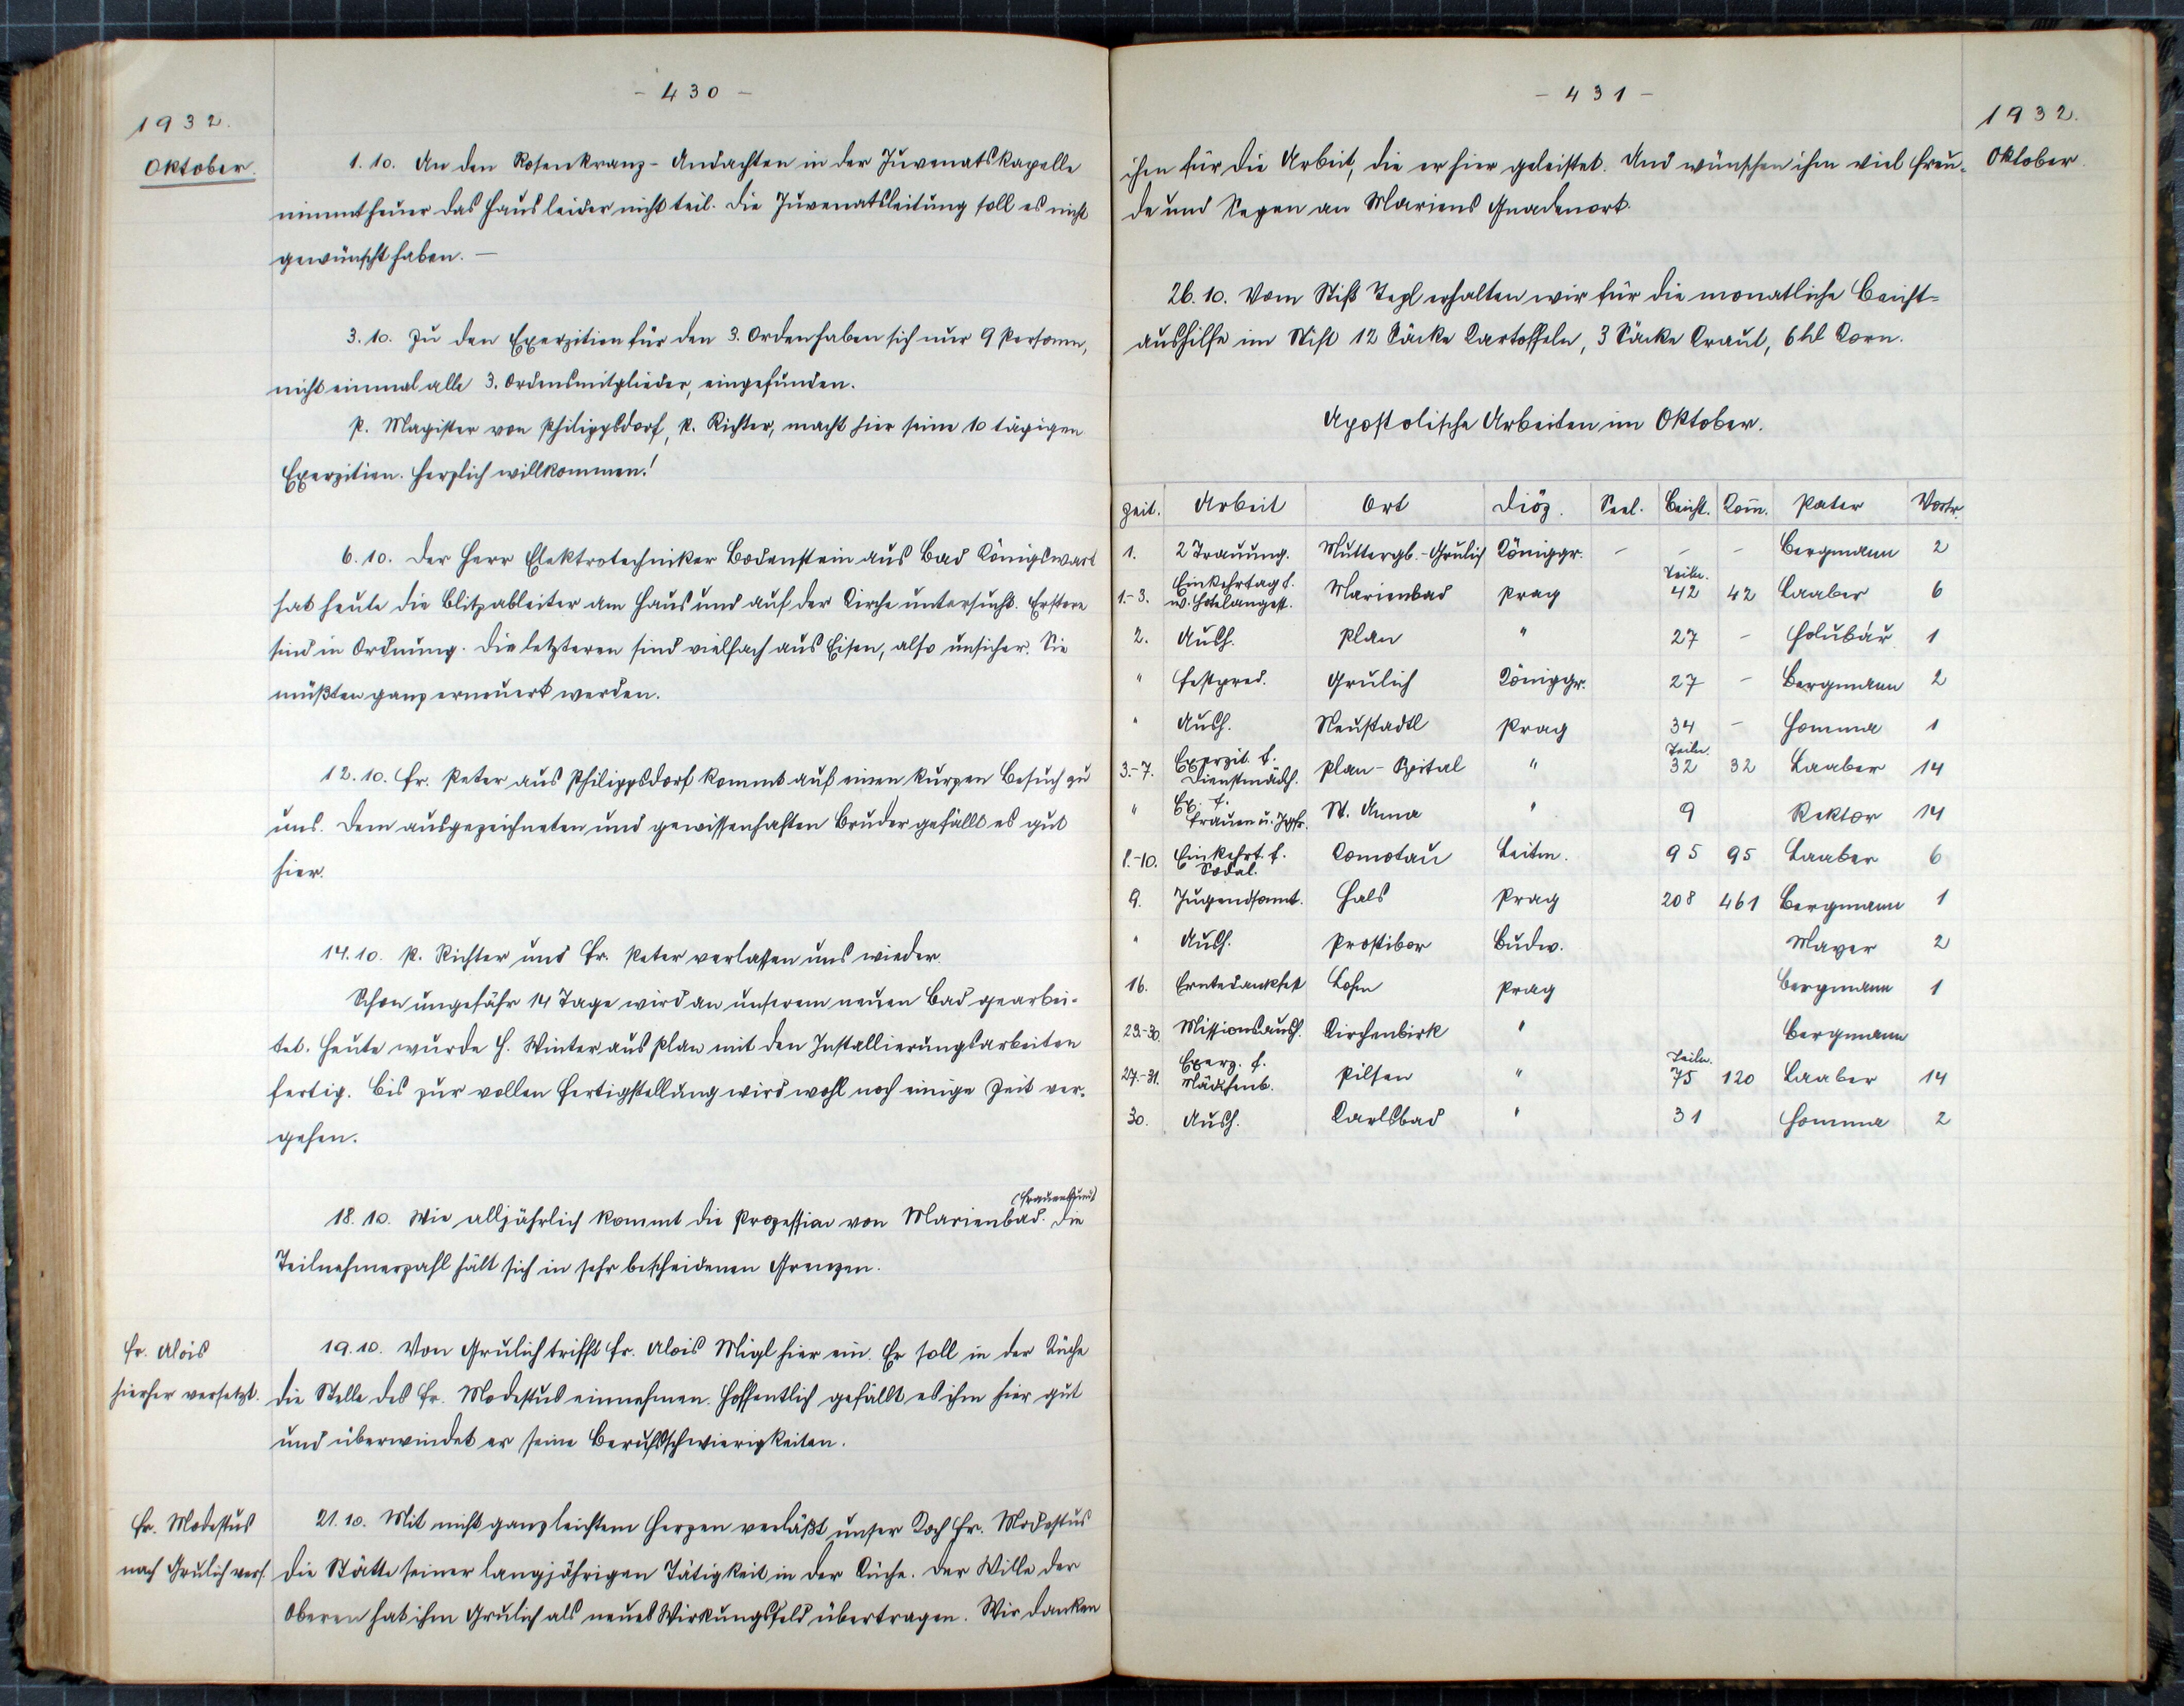 - 430 -
1932.
Oktober.
1.10. An den Rosenkranz-Andachten in der Juvenatskapelle
nimmt heuer das Haus leider nicht teil. Die Juvenatsleitung soll es nicht
gewünscht haben. —
3.10. Zu den Exerzitien für den 3. Orden haben sich nur 9 Personen,
nicht einmal alle 3. Ordensmitglieder, eingefunden.
P. Magister von Philippsdorf, P. Richter, macht hier seine 10 tägigen
Exerzitien. Herzlich willkommen!
6.10. Der Herr Elektrotechniker Bodenstein aus Bad Königswart
hat heute die Blitzableiter am Haus und auf der Kirche untersucht. Erstere
sind in Ordnung. Die letzteren sind vielfach aus Eisen, also unsicher. Sie
müßten ganz erneuert werden.
12.10. Fr. Peter aus Philippsdorf kommt auf einen kurzen Besuch zu
uns. Dem ausgezeichneten und gewissenhaften Bruder gefällt es gut
hier.
14.10. P. Richter und Fr. Peter verlassen uns wieder.
Schon ungefähr 14 Tage wird an unserem neuen Bad gearbei-
tet. Heute wurde H. Winter aus Plan mit den Installierungsarbeiten
fertig. Bis zur vollen Fertigstellung wird wohl noch einige Zeit ver-
gehen.
(Frauenbund)
18.10. Wie alljährlich kommt die Prozession von Marienbad. Die
Teilnehmerzahl hält sich in sehr bescheidenen Grenzen.
Fr. Alois
hierher versetzt.
19.10. Von Grulich trifft Fr. Alois Migl hier ein. Er soll in der Küche
die Stelle des Fr. Modestus einnehmen. Hoffentlich gefällt es ihm hier gut
und überwindet er seine Berufsschwierigkeiten.
Fr. Modestus
nach Grulich vers.
21.10. Mit nicht ganz leichtem Herzen verläßt unser Koch Fr. Modestus
die Stätte seiner langjährigen Tätigkeit in der Küche. Der Wille der
Oberen hat ihm Grulich als neues Wirkungsfeld übertragen. Wir danken
- 431 -
1932.
Oktober
ihm für die Arbeit, die er hier geleistet. Und wünschen ihm viel Freu-
de und Segen an Mariens Gnadenort.
26.10. Vom Stift Tepl erhalten wir für die monatliche Beicht-
aushilfe im Stift 12 Säcke Kartoffeln, 3 Säcke Kraut, 6 hl Korn.
Apostolische Arbeiten im Oktober.
Zeit. Arbeit Ort Diöz. Seel. Beicht. Kom̄. Pater Vortr.
1. 2 Trauung. Muttergb.-Grulich Königgr. - - - Bergmann 2
1.-3. Einkehrtag f. w. Hotelangest. Marienbad Prag Teiln. 42 42 Laaber 6
2. Aush. Plan " 27 - Holubář 1
" Festpred. Grulich Königgr. 27 - Bergmann 2
" Aush. Neustadtl Prag 34 - Homma 1
3.-7. Exerzit. f. Dienstmädch. Plan-Spital " Teiln. 32 32 Laaber 14
" Ex. f. Frauen u. Jgfr. St. Anna " 9 Rektor 14
8.-10. Einkehrt. f. Sodal. Komotau Leitm. 95 95 Laaber 6
9. Jugendsonnt. Hals Prag 208 461 Bergmann 1
" Aush. Prostibor Budw. Mayer 2
16. Erntedankfest Lohm Prag Bergmann 1
23.-30. Missionsaush. Kirchenbirk " Bergmann
27.-31. Exerz. f. Mädchenb. Pilsen " Teiln. 75 120 Laaber 14
30. Aush. Karlsbad " 31 Homma 2